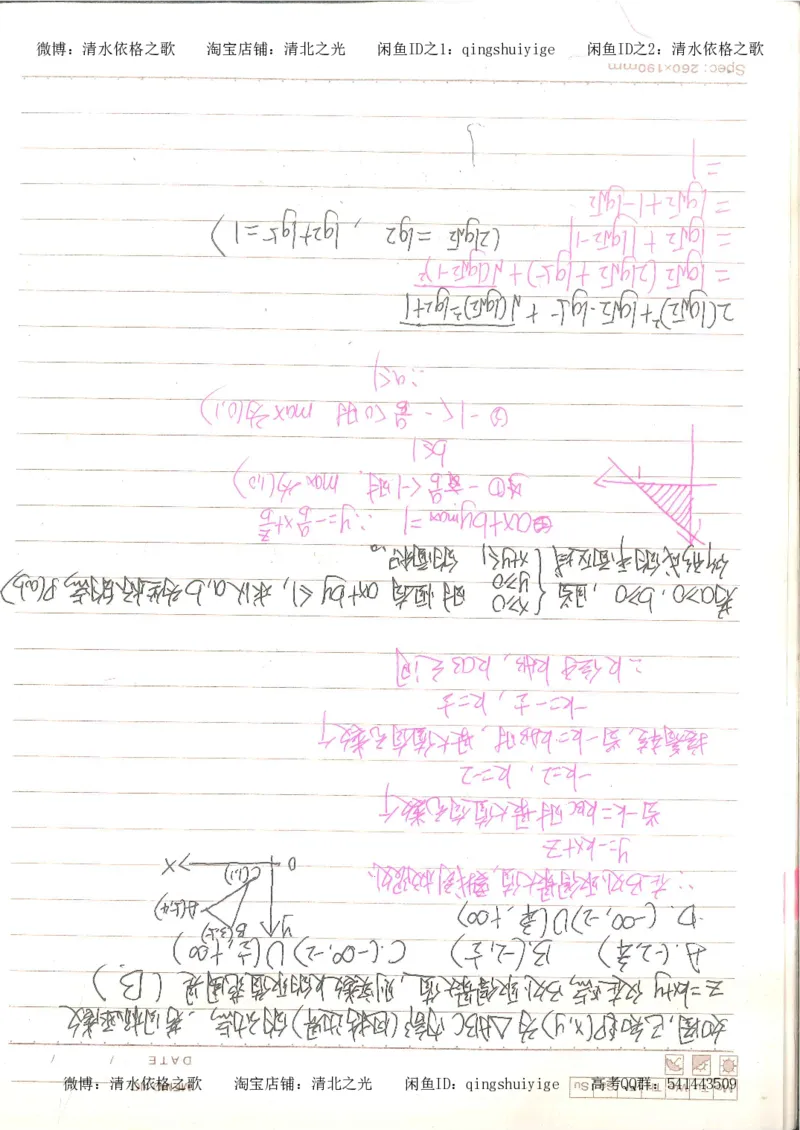 微博：清水依格之歌 淘宝店铺：清北之光 闲鱼ID之1：qingshuiyige 闲鱼ID之2：清水依格之歌
如图,已知P(x,y)为△ABC内部(包括边界)的动点,若目标函数
z=kx+y仅在点B处取得最大值,则实数k的取值范围是(B)
B.(-2,1/2) C.(-∞,-2)∪(1/2,+∞)
O
x
y
C(1,1)
∴在B处取得最大值,
y=-kx+z
当-k=kBC时最大值有无数个
-k=2, k=-2
当-k=kAB时,最大值有无数个
-k=-1/2, k=1/2
∴k位于kAB, kBC之间
若a>0,b>0,且当{x≥0 y≥0 x+y≤1 时,恒有ax+by≤1,求以a,b为坐标的点P(a,b)
所形成的平面区域的面积。
ax+by max=1 ∴y=-a/b x+z/b
①-a/b<-1时, max为(1,0)
b≤1
②-1<-a/b<0时 max为(0,1)
∴a≤1
2(lg√2)²+lg√2·lg5+√((lg√2)²-lg2+1)
=lg√2(2lg√2+lg5)+√(lg√2-1)²
=lg√2+|lg√2-1| (2lg√2=lg2, lg2+lg5=1)
=lg√2+1-lg√2
=1
Spec: 260×190mm
DATE / /
微博：清水依格之歌 淘宝店铺：清北之光 闲鱼ID：qingshuiyige 高考QQ群：541443509